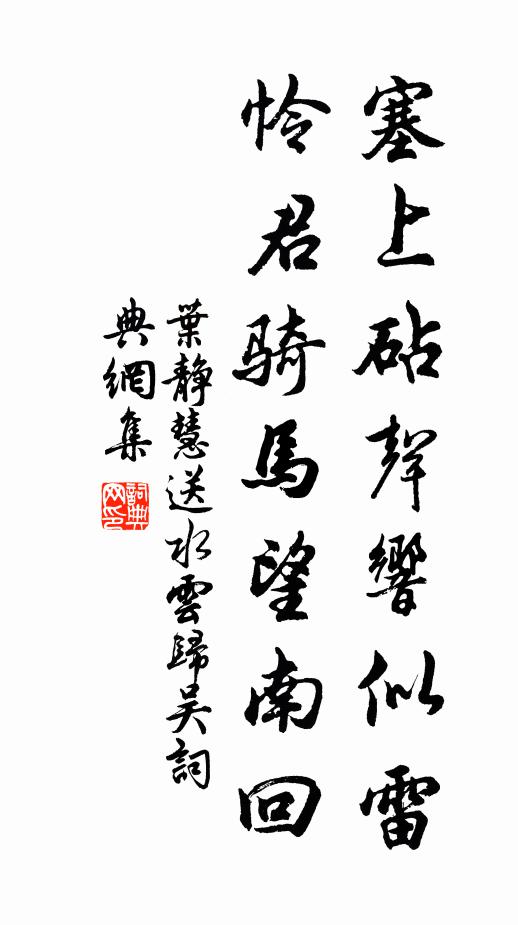 塞上砧聲響似雷
憐君騎馬望南回
葉靜慧送水雲歸吴詞
典網集
詞典网印